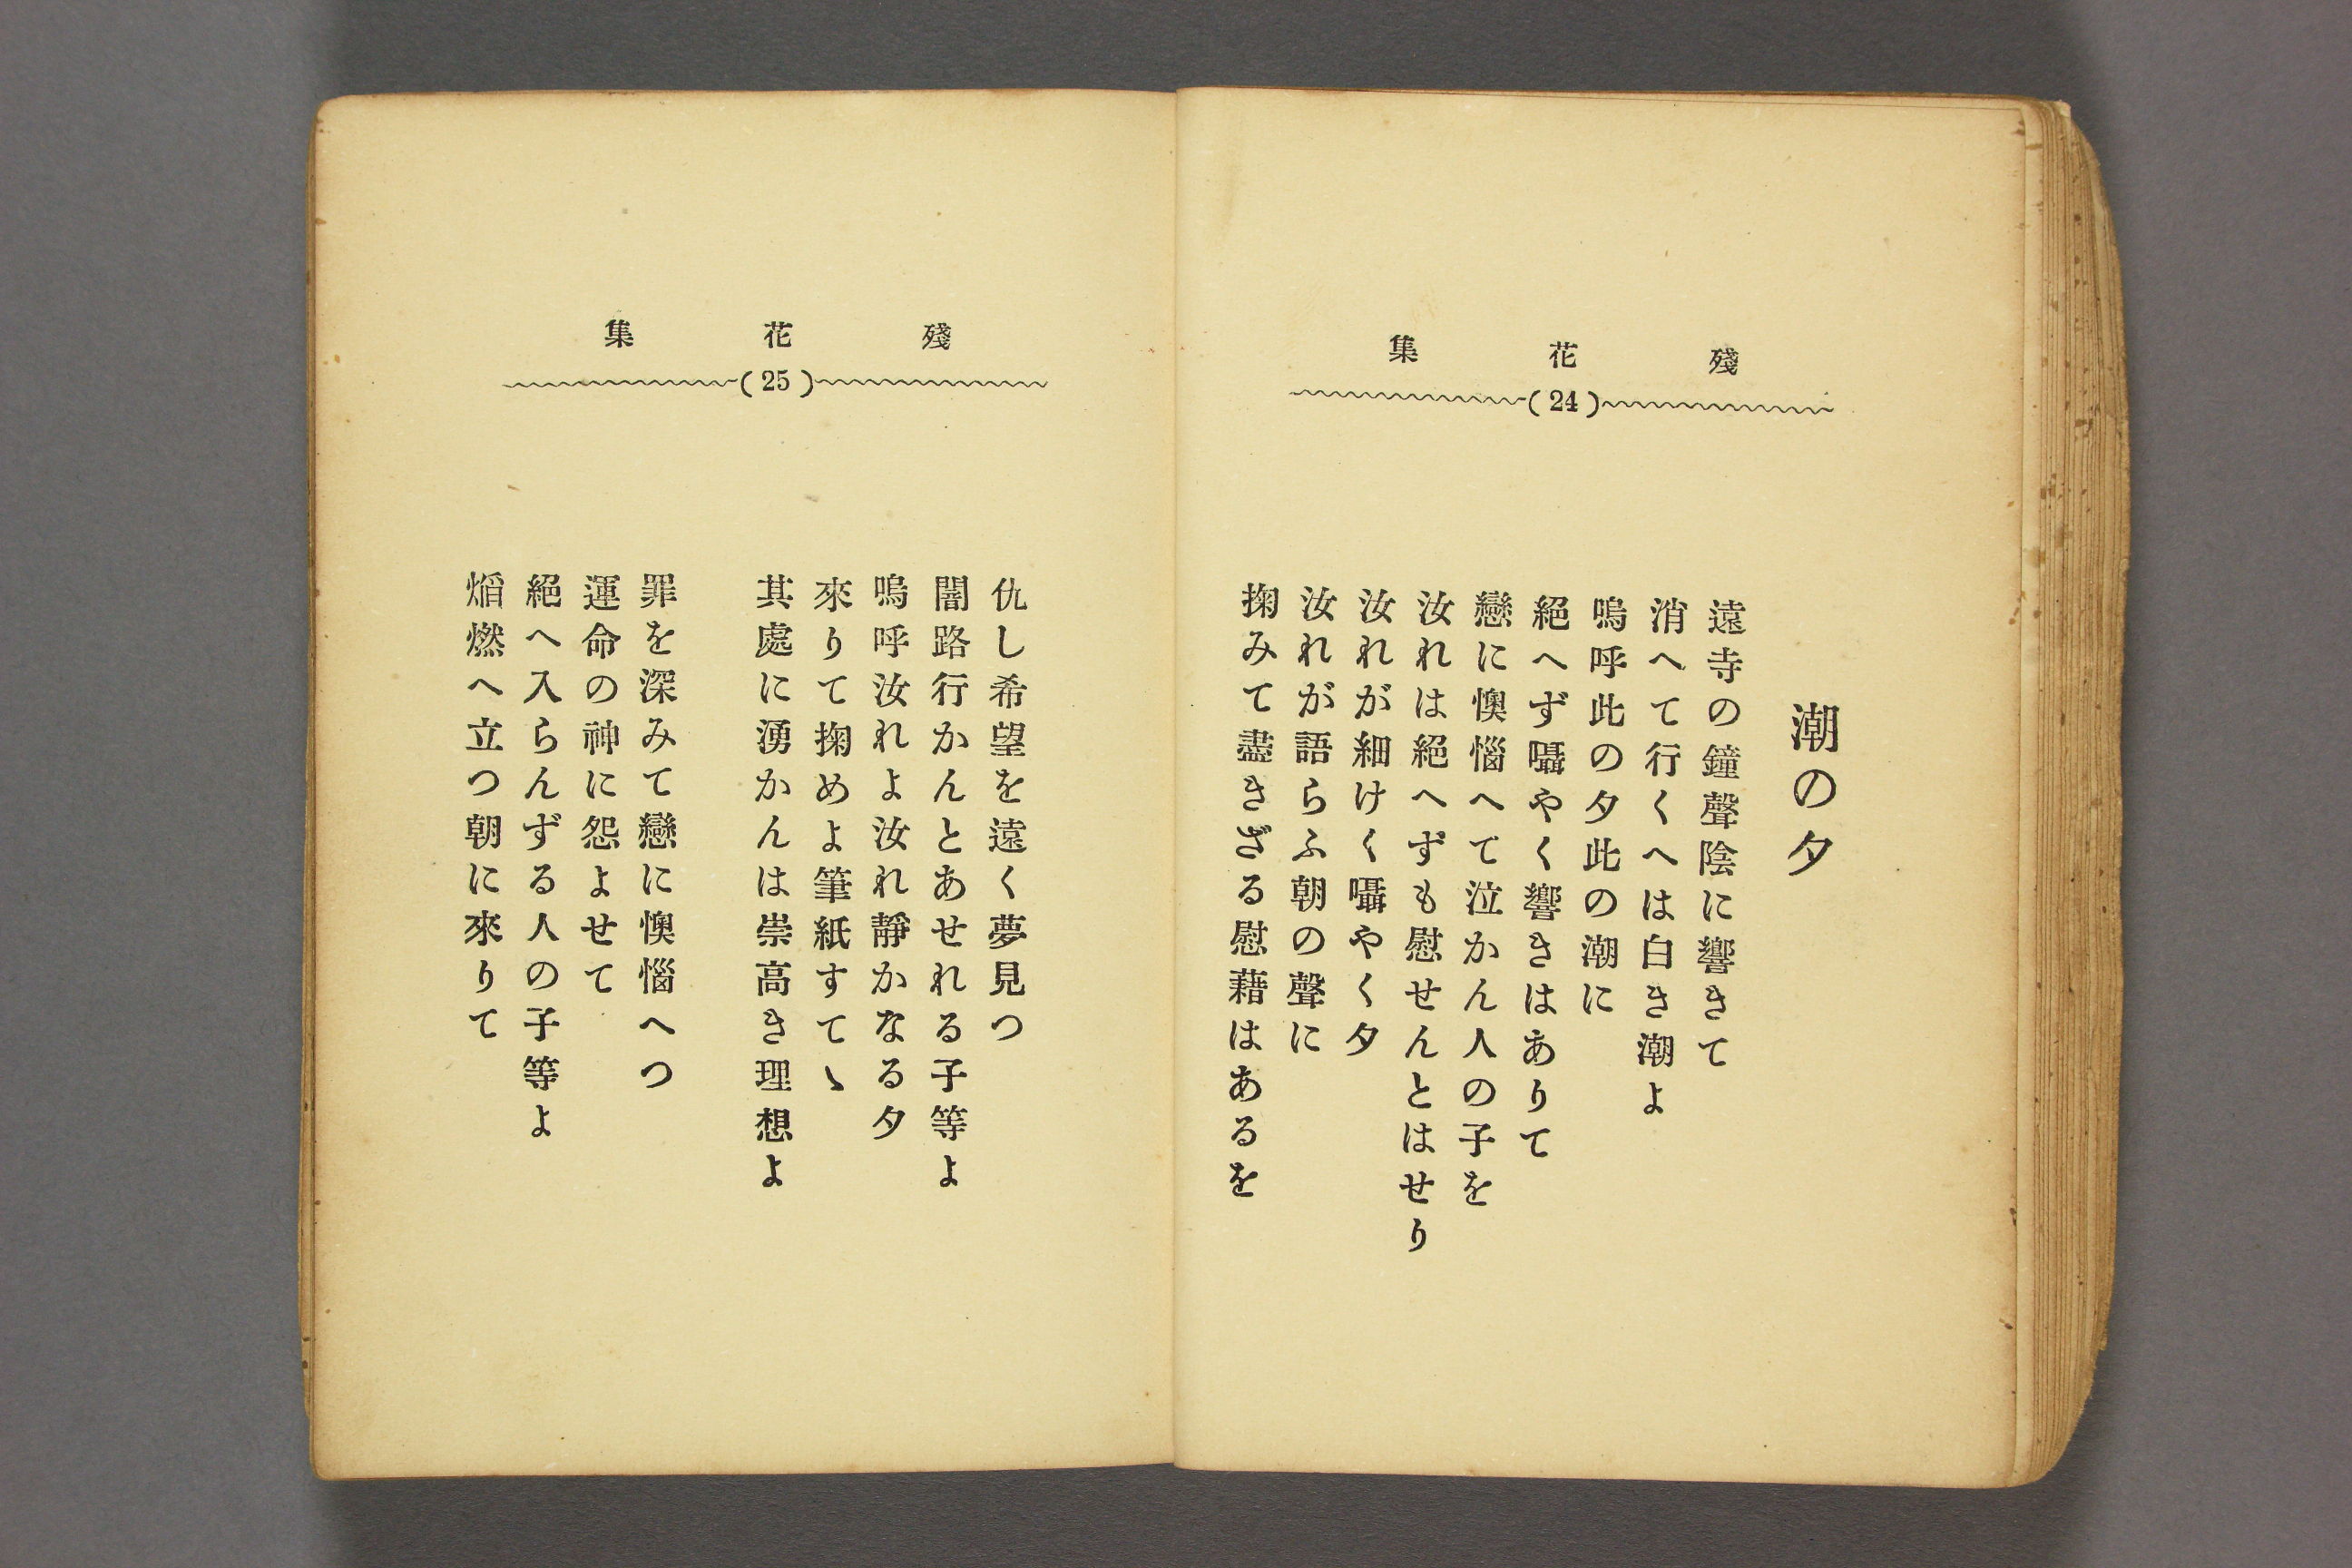 殘花集
(24)
潮の夕
遠寺の鐘聲陰に響きて
消へて行くへは白き潮よ
嗚呼此の夕此の潮に
絕へず囁やく響きはありて
戀に懊惱へて泣かん人の子を
汝れは絕へずも慰せんとはせり
汝れが細けく囁やく夕
汝れが語らふ朝の聲に
掬みて盡きざる慰藉はあるを
殘花集
(25)
仇し希望を遠く夢見つ
闇路行かんとあせれる子等よ
嗚呼汝れよ汝れ靜かなる夕
來りて掬めよ筆紙すてゝ
其處に湧かんは崇高き理想よ
罪を深みて戀に懊惱へつ
運命の神に怨よせて
絕へ入らんずる人の子等よ
熖燃へ立つ朝に來りて